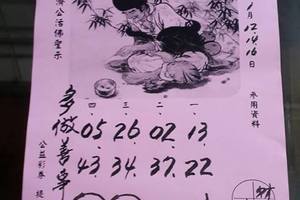 濟公活佛聖示
1月12.14.16日
參用資料
多做善事
四 三 二 一
05 26 02 13
43 34 37 22
公益彩券 提